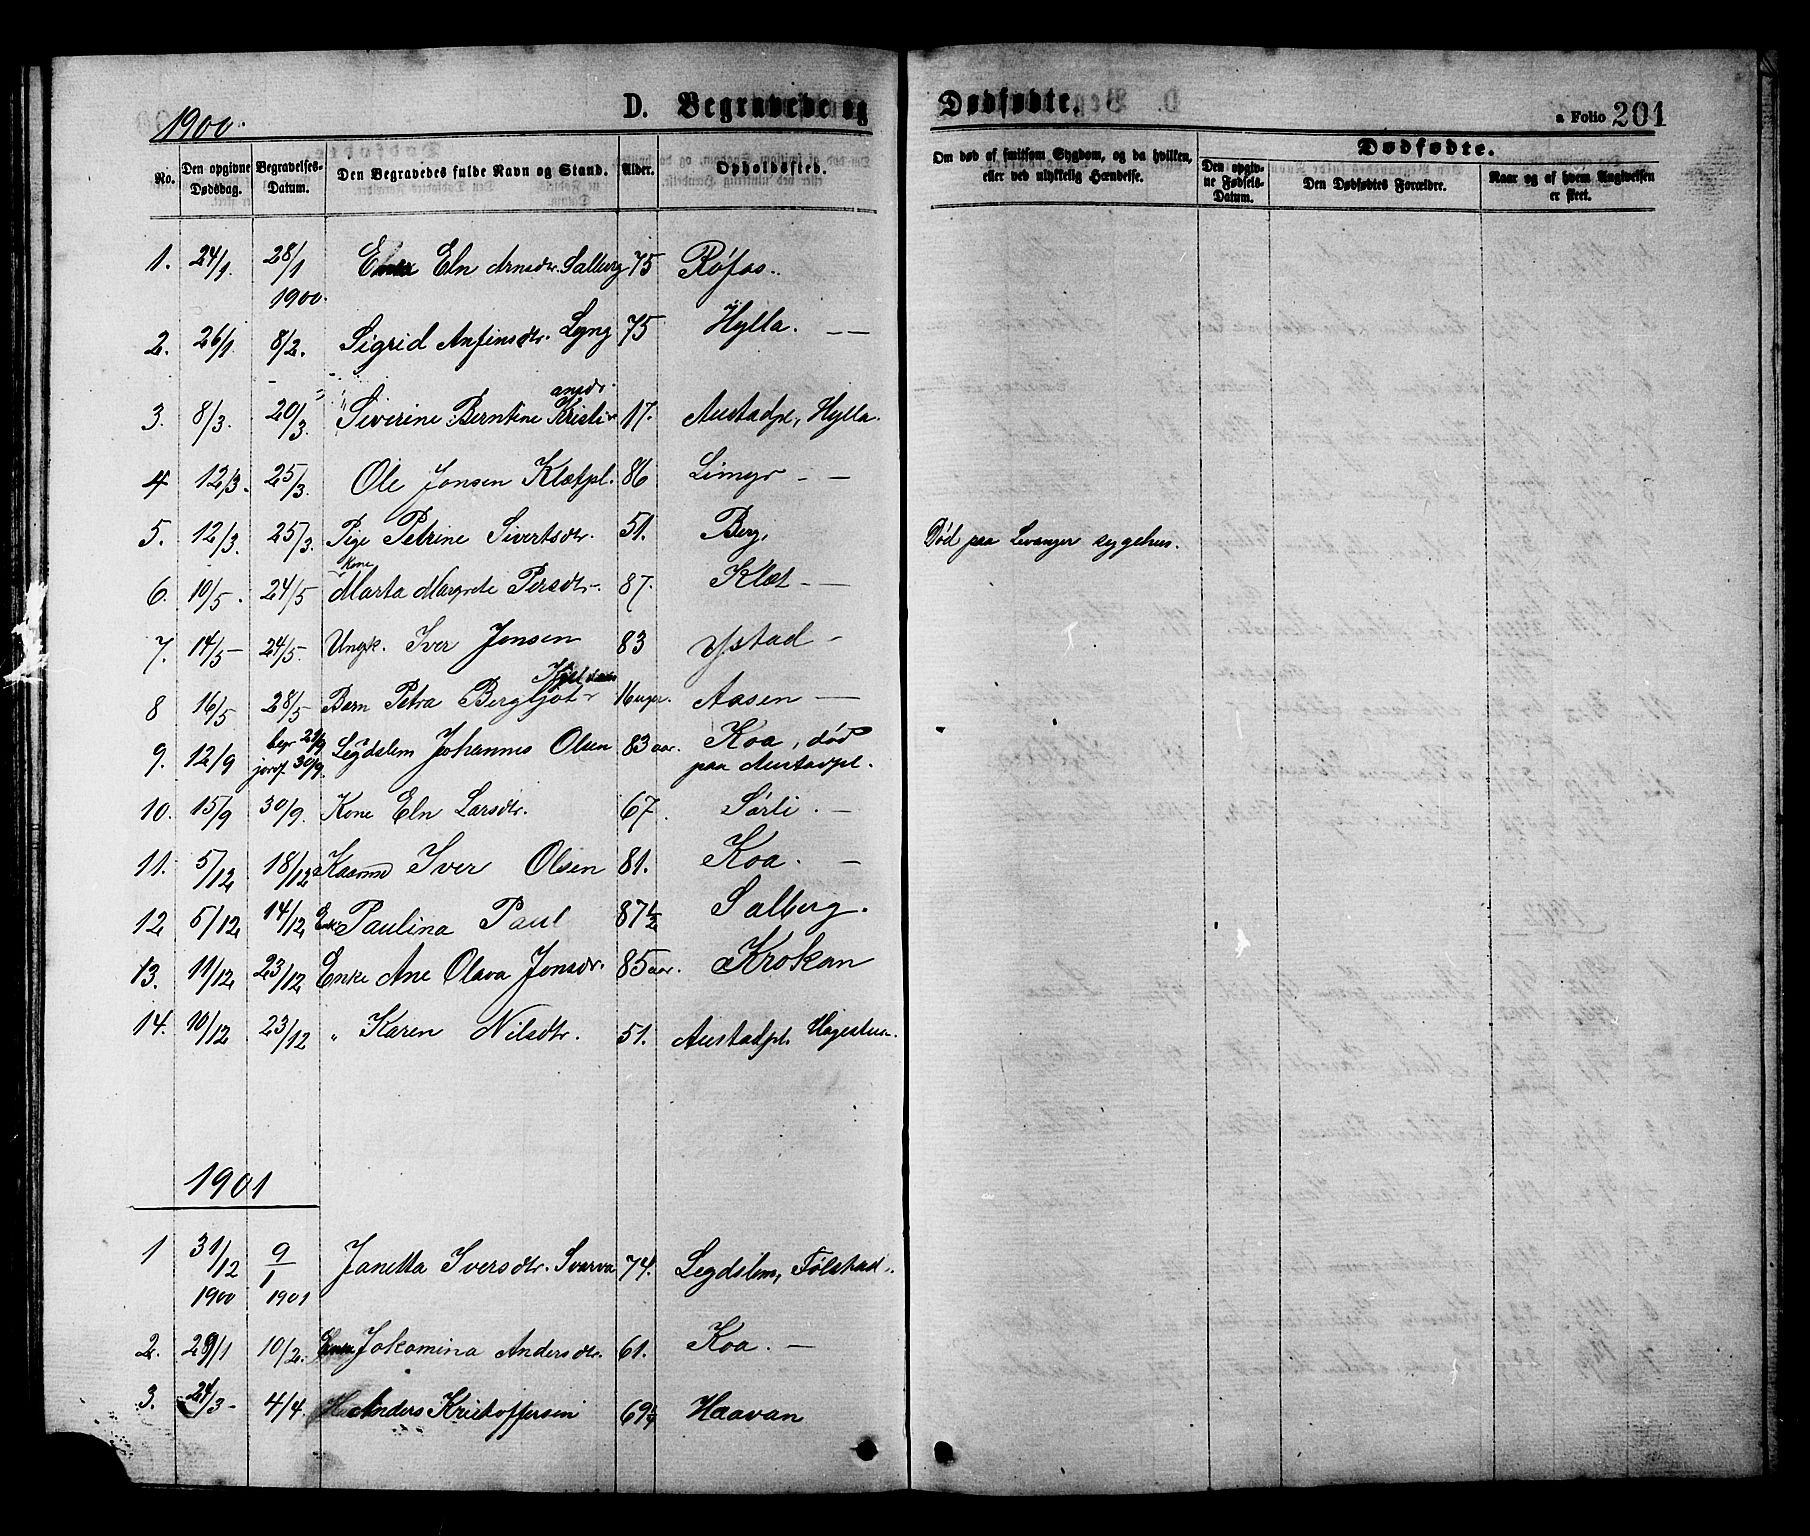 1900.
D. Begravede og Dødfødte.
a Folio 201
No. Den opgivne Dødsdag. Begravelses-Datum. Den Begravedes fulde Navn og Stand. Alder. Opholdssted. Om død af smitsom Sygdom, og da hvilken, eller ved ulykkelig Hændelse. Den opgivne Fødsels-Datum. Dødfødte. Den Dødfødtes Forældre. Naar og af hvem Angivelsen er skeet.
1. 24/1. 28/1 1900. Eln Arnsdtr. Salberg 75 Røfas..
2. 26/1. 8/2. Sigrid Anfinsdtr. Lyng 75 Hylla. — —
3. 8/3. 20/3. Siverine Berntine Kristi ansdr. 17. Austadpl, Hylla.
4 12/3. 25/3. Ole Jonsen Klætpl. 86 Limyr - —
5. 12/3. 25/3. Pige Petrine Sivertsdtr. 51. Berg, Død paa Levanger sygehus.
6. 10/5. 24/5 Kone Marta Margrete Persdtr. 87. Klæt - —
7. 14/5 - 24/5. Ungk. Iver Jonsen 83 Ystad -
8 16/5 28/5 Barn Petra Bergljot 16 uger. Aasen —
9. 12/9 begr 21/9 jordf. 30/9. Legdslem Johannes Olsen 83 aar. Koa, død paa Austadpl.
10. 15/9 30/9. Kone Eln Larsdtr. 67. Sørli. —
11. 5/12 18/12 Kaarmd Iver Olsen 81. Koa. —
12 5/12 14/12 Enke Paulina Paul 87 1/2 Salberg.
13. 11/12 23/12 Enke Ane Olava Jonsdr. 85 aar. Krokan
14. 10/12 23/12 " Karen Nilsdtr. 51. Austadpl. Hagestun.
1901
1 31/12 1900 9/1 1901 Janetta Iversdtr. Svarva 74. Legdslem, Følstad..
2. 29/1 10/2. Jakomina Andersdtr. 61. Koa. —
3. 24/3 - 4/4. Anders Kristoffersen 69 Haavan